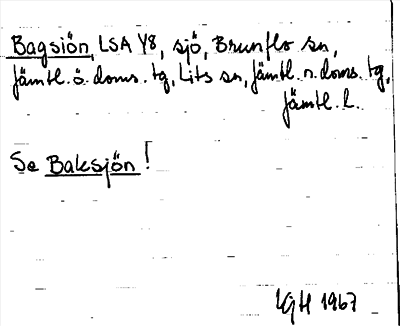 Bagsiön, LSA Y8, sjö, Brunflo sn,
Jämtl. ö. doms. tg, Lits sn, Jämtl. n. doms. tg,
Jämtl. l.
Se Baksjön!
LGH 1967